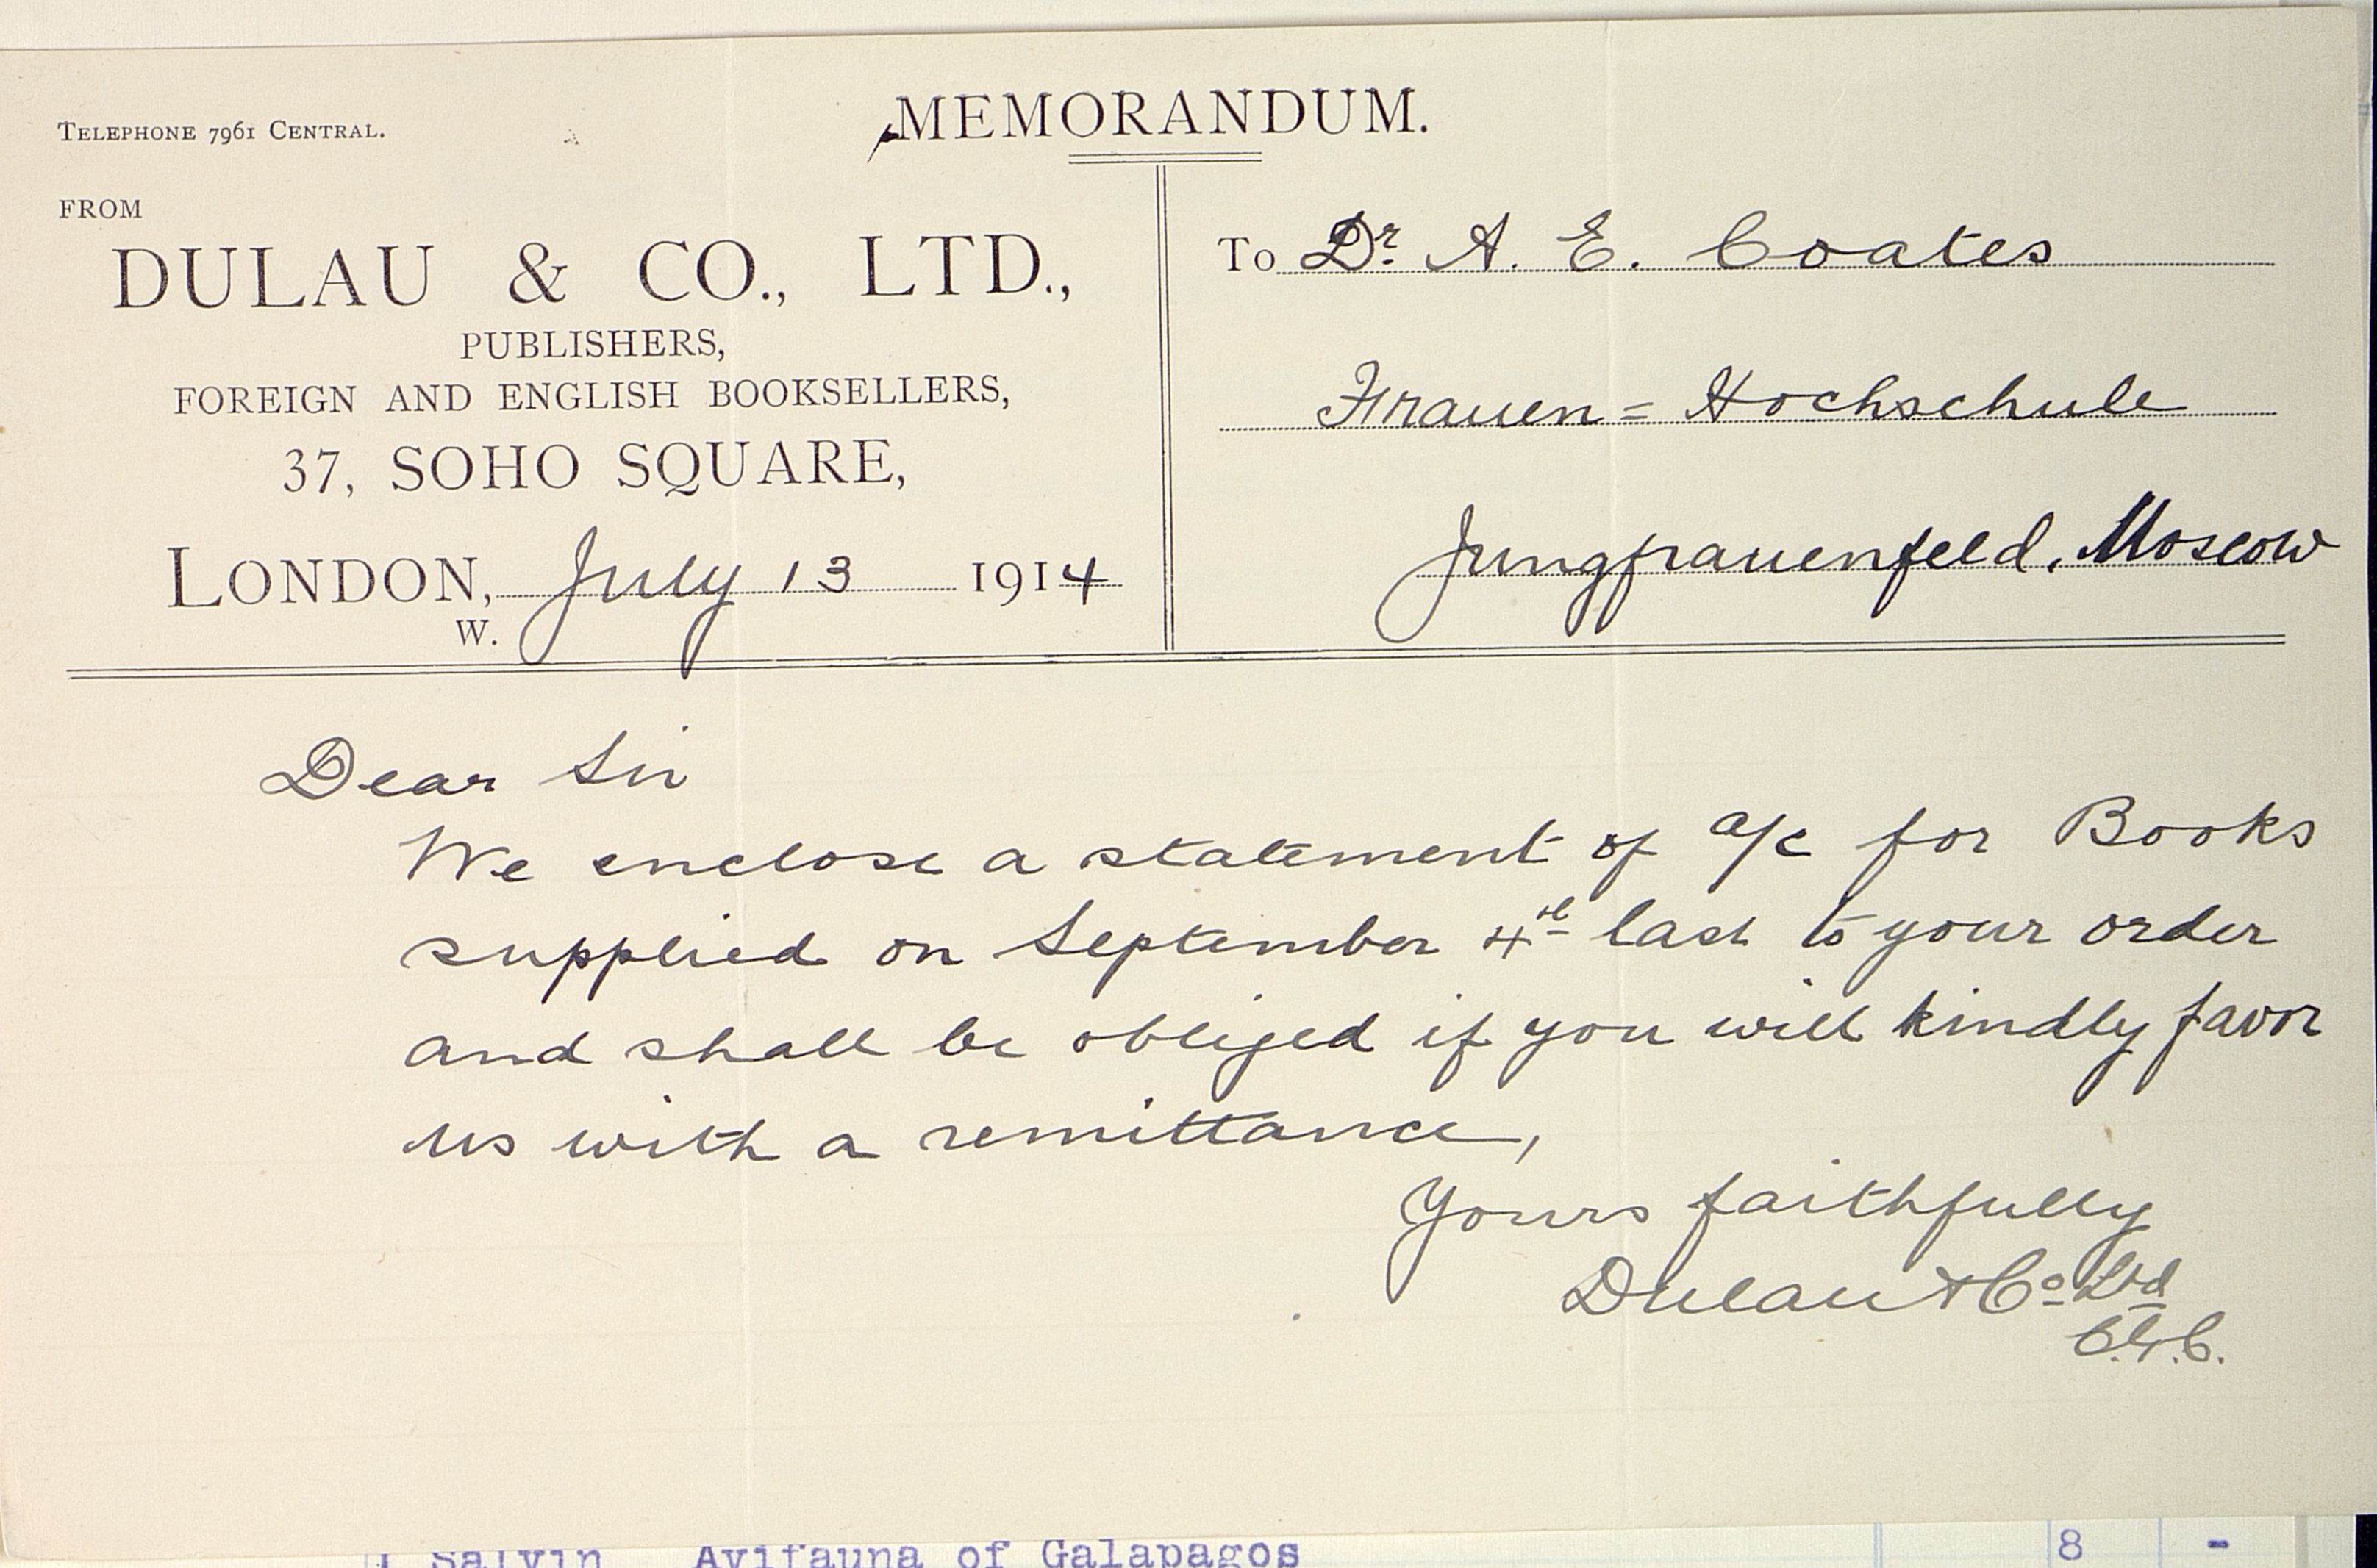 MEMORANDUM.
TELEPHONE 7961 CENTRAL.
FROM
DULAU & CO., LTD.,
PUBLISHERS,
FOREIGN AND ENGLISH BOOKSELLERS,
37, SOHO SQUARE,
LONDON, July 13 1914
W.
To Dr. A. E. Coates
Frauen=Hochschule
Jungfrauenfeld, Moscow
Dear Sir
We enclose a statement of a/c for Books
supplied on September 4th last to your order
and shall be obliged if you will kindly favor
us with a remittance,
Yours faithfully
Dulau & Co Ltd
1 Salvin Avifauna of Galapagos 8 -